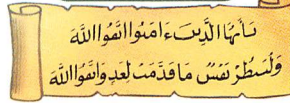 يَٰٓأَيُّهَا الَّذِينَ ءَامَنُوا اتَّقُوا اللَّهَ
وَلْتَنظُرْ نَفْسٌ مَا قَدَّمَتْ لِغَدٍ وَاتَّقُوا اللَّهَ